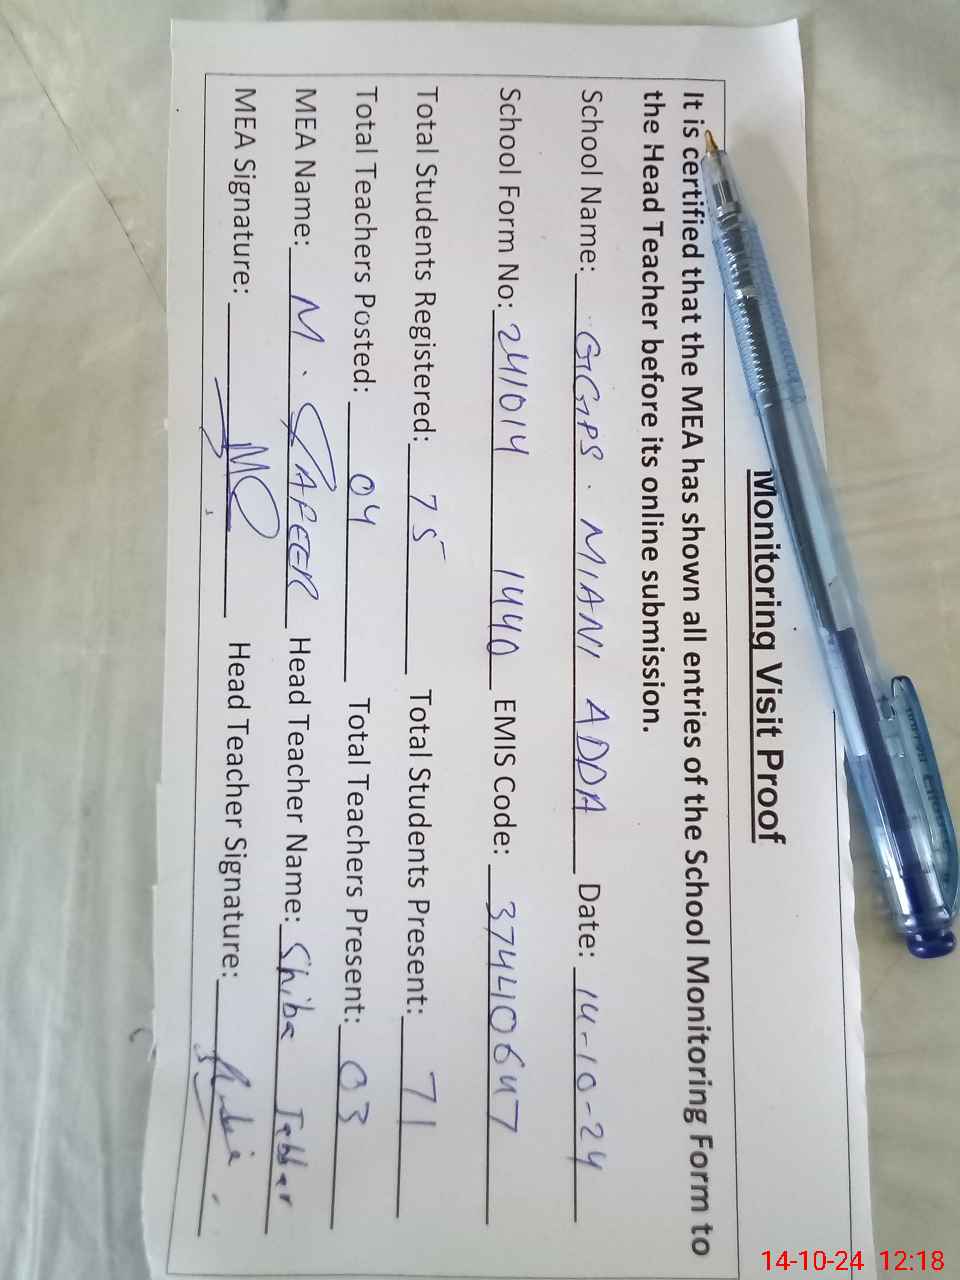 Monitoring Visit Proof
It is certified that the MEA has shown all entries of the School Monitoring Form to
the Head Teacher before its online submission.
School Name: GGPS. MIANI ADDA Date: 14-10-24
School Form No: 241014 1440 EMIS Code: 37440647
Total Students Registered: 75 Total Students Present: 71
Total Teachers Posted: 04 Total Teachers Present: 03
MEA Name: M. Head Teacher Name: Shiba Jabbar
MEA Signature: Head Teacher Signature:
14-10-24 12:18